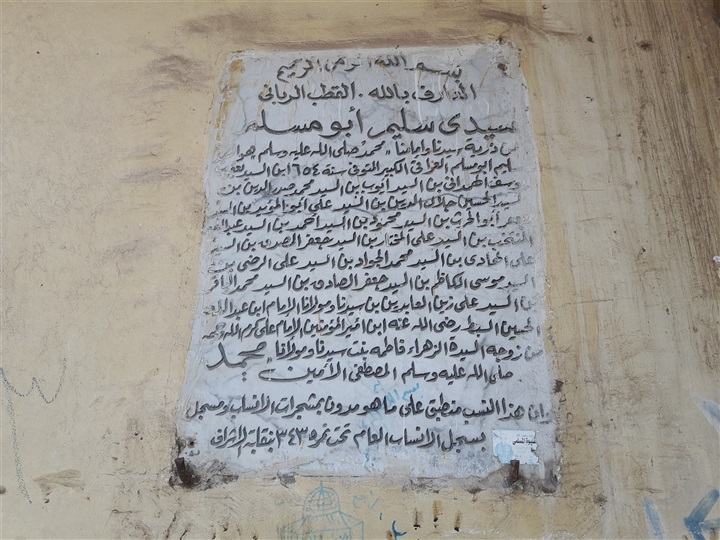 بسم الله الرحمن الرحيم
العارف بالله . القطب الرباني
سيدى سليم أبو مسلم
من ذرية سيدنا وإمامنا "محمد" صلى الله عليه وسلم هو
سليم أبو مسلم العراقي الكبير المتوفي سنة ٦٥٤ ابن السيد
يوسف الهمداني بن السيد أيوب بن السيد محمد صدر الدين بن
السيد الحسين جلال الدين بن السيد على المؤيد بن السيد
أبو الحرث بن السيد محمود بن السيد أحمد بن السيد عبدالله
بن السيد على المختار بن السيد جعفر المصدق بن السيد
على الهادى بن السيد محمد الجواد بن السيد على الرضى بن
السيد موسى الكاظم بن السيد جعفر الصادق بن السيد محمد الباقر
بن السيد على زين العابدين بن سيدنا ومولانا الإمام ابن عبدالله
الحسين السبط رضى الله عنه ابن أمير المؤمنين الإمام على كرم الله وجهه
من زوجه السيدة الزهراء فاطمه بنت سيدنا ومولانا "محمد
صلى الله عليه وسلم المصطفى الأمين"
وان هذا النسب منطبق على ما هو مدون بمشجرات الأنساب ومسجل
بسجل الأنساب العام تحت نمره ٣٤٣٥ بنقابة الأشراف